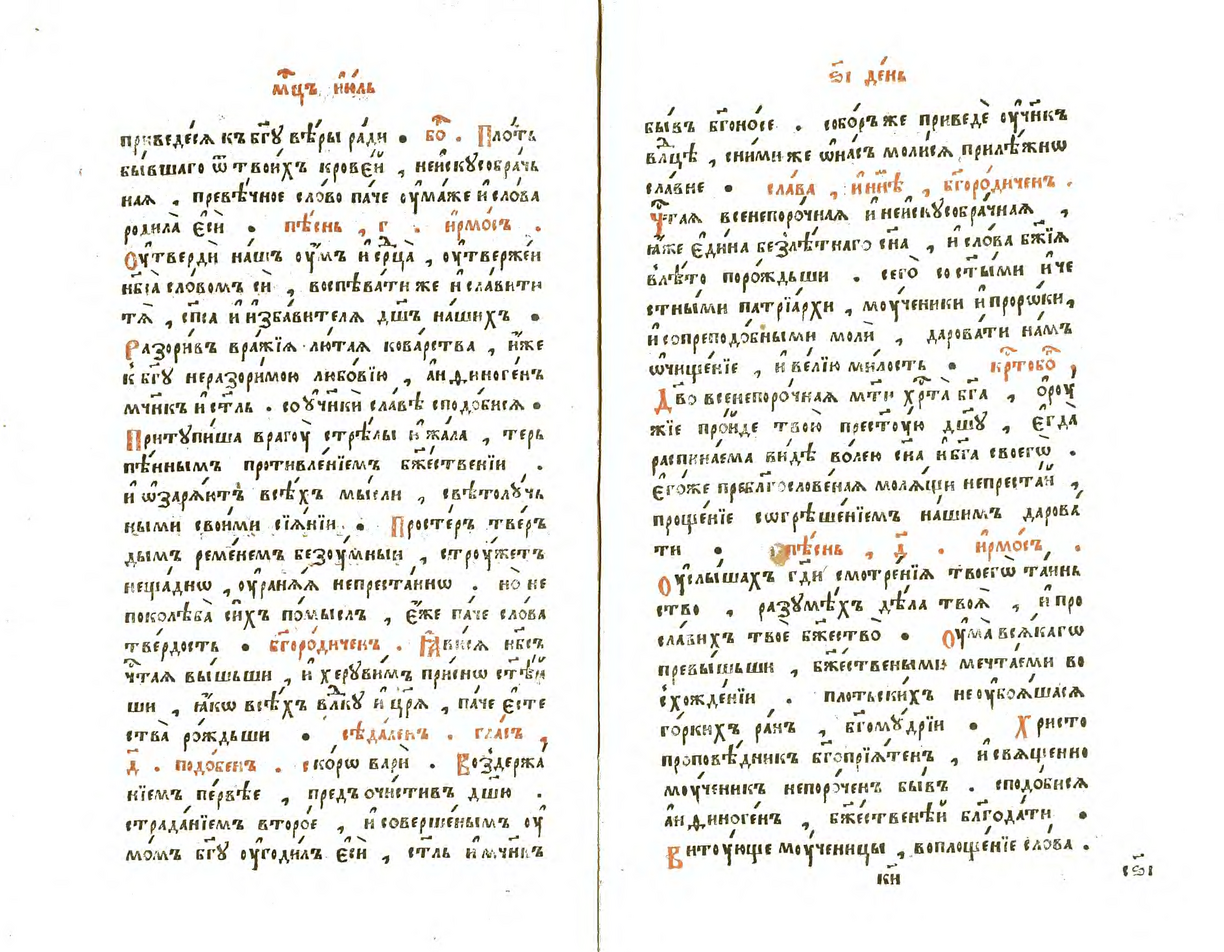 мцⷭ҇ъ , и҆ю́ль
приведе́сѧ къ бг҃ꙋ вѣ́ры ра́ди . бо҇ . Пло́ть
бы́вшаго ѿ твои́хъ крове́й , неискꙋсобра́чь
наѧ . превѣ́чное сло́во па́че оу҆ма́же и҆ сло́ва
родила̀ є҆сѝ . пѣ́снь , г҃ . і҆рмо́съ .
Оу҆твердѝ на́шъ оу҆́мъ и҆ срⷣца̀ , оу҆твержеи
нб҃са̀ сло́вомъ сѝ , воспѣва́ти же и҆ сла́вити
тѧ̀ , сп҃са и҆ и҆зба́вителѧ дш҃ъ на́шихъ .
Разори́въ вра́жїѧ лю́таѧ кова́рства , и҆́же
к бг҃ꙋ неразори́мою любо́вїю , анѳиноге́нъ
мч҃нкъ и҆ ст҃ль . со оу҆чн҃ки сла́вѣ сподо́бисѧ .
Притꙋпи́ша враго́ꙋ стрѣ́лы и҆ жа́ла , терь
пѣ́ннымъ противле́нїемъ бж҃ественїи .
и҆ ѡ҆заря́итъ всѣ́хъ мы́сли , свѣтолꙋ́чь
ными свои́ми сїѧ́нїи . Просте́ръ тве́рь
дымъ реме́немъ безоу́мныи , строу́жетъ
неща́днѡ , оу҆ра́нѧѧ непреста́ннѡ . но̀ не
поколѣ́ба си́хъ по́мыслъ , є҆́же па́че сло́ва
тве́рдость . бг҃оро́диченъ . Ꙗ҆ви́сѧ нб҃съ
чⷭ҇таѧ вы́шьши , и҆ херꙋви́мъ при́снѡ ст҃ѣи
ши , ꙗ҆́кѡ всѣ́хъ влⷣкꙋ и҆ цр҃ѧ̀ , па́че є҆сте
ства̀ ро́ждьши . сѣда́ленъ . гла́съ ,
д҃ . подо́бенъ . ско́рѡ варѝ . Воздержа́
нїемъ пе́рвѣе , предъ ѡчи́стивъ дш҃ю .
страда́нїемъ второ́е , и҆ соверше́нымъ оу҆
мо́мъ бг҃ꙋ оу҆годи́лъ є҆сѝ , ст҃ль и҆ мч҃нкъ
ѕ҃і де́нь
бы́въ бг҃оно́се . собо́ръ же приведѐ оу҆чн҃къ
влⷣцѣ , сни́ми же ѡ҆ на́съ моли́сѧ прилѣ́жнѡ
сла́вне . сла́ва , и҆ ны́нѣ , бг҃оро́диченъ .
Чⷭ҇таѧ всенепоро́чнаѧ и҆ неискꙋсобра́чнаѧ ,
ꙗ҆́же є҆ди́на безлѣ́тнаго сн҃а , и҆ сло́ва бж҃їѧ
влѣ́то поро́ждьши . сего̀ со ст҃ыми и҆ че
стны́ми патрїа́рхи , мо́ученики и҆ про́ро́ки ,
и҆ сопреподо́бными молѝ , дарова́ти на́мъ
ѡ҆чище́нїе , и҆ ве́лїю ми́лость . крⷭ҇тобоⷢ ,
Дв҃о всенепоро́чнаѧ мт҃и хрⷭ҇та̀ бг҃а , ѻ҆роу́
жїе про́йде твою̀ престо́ую дш҃ꙋ , є҆гда̀
распина́ема ви́дѣ во́лею сн҃а и҆ бг҃а своегѡ̀ .
Є҆го́же преблагослове́наѧ молѧ́щи непреста́й ,
проще́нїе согрѣше́нїемъ на́шимъ дарова́
ти . пѣ́снь , д҃ . і҆рмо́съ .
Оу҆слы́шахъ гдⷭ҇и смотре́нїѧ твоегѡ̀ та́инь
ство , разꙋмѣ́хъ дѣла̀ твоѧ̀ , и҆ про
сла́вихъ твоѐ бж҃ество̀ . Оу҆ма̀ всѧ́кагѡ
превы́шьши , бж҃ественыими мечта́еми во
схожде́нїи . пло́тьскихъ не оу҆боѧ́шасѧ
го́ркихъ ра́нъ , бг҃омꙋ́дрїи . Христо
пропове́дникъ бг҃опрїѧ́тенъ , и҆ свѧще́нно
мо́ученикъ непоро́ченъ бы́въ . сподо́бисѧ
анѳиноге́нъ , бж҃ественѣй благода́ти .
Витоу́юще мо́ученицы , воплоще́нїе сло́ва .
ки́ сѕ҃і